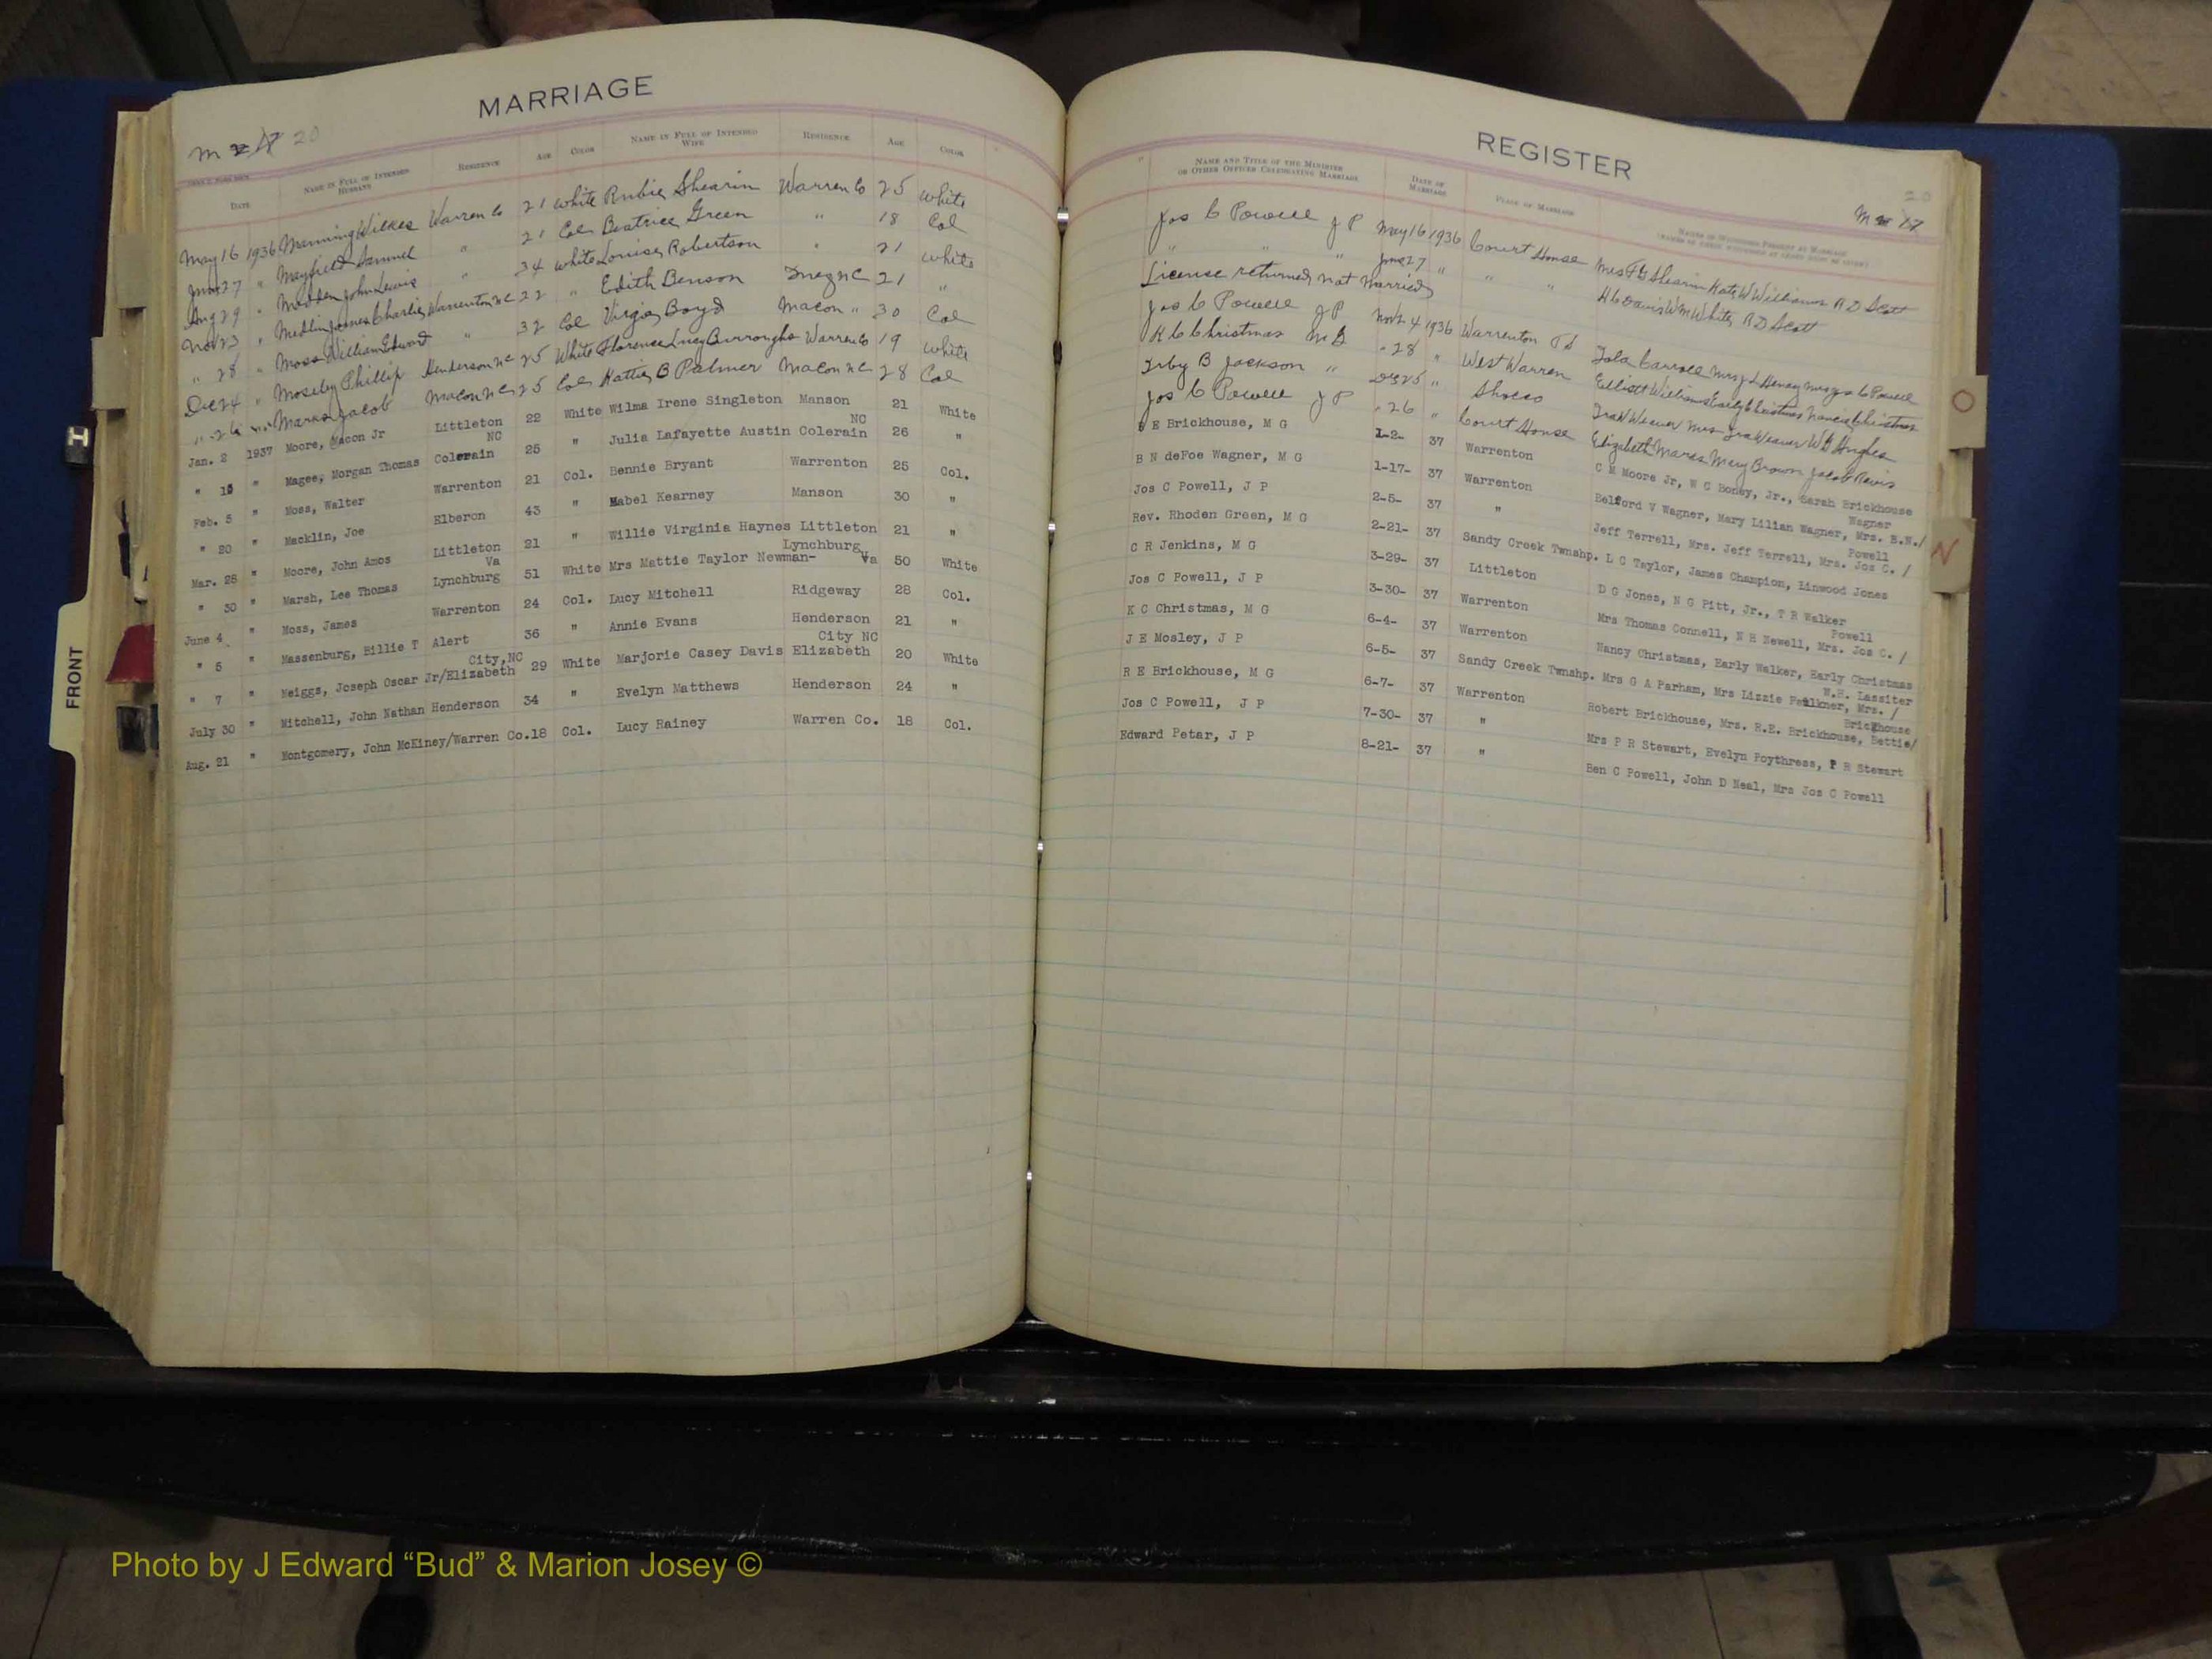 MARRIAGE
M 20
DATE NAME IN FULL OF INTENDED HUSBAND RESIDENCE AGE COLOR NAME IN FULL OF INTENDED WIFE RESIDENCE AGE COLOR
May 16 1936 Manning Wilkes Warren Co 21 white Rubie Shearin Warren Co 25 white
June 27 " Mayfield Samuel " 21 Col Beatrice Green " 18 Col
Aug 29 " Madden John Lewis " 34 white Louise Robertson " 21 white
Nov 23 " Medlin James Charlie Warrenton NC 22 " Edith Benson NC 21 "
" 28 " Moss William Edward " 32 Col Virgie Boyd Macon " 30 Col
Dec 24 " Moseley Phillip Henderson NC 25 White Florence Lucy Burroughs Warren Co 19 white
" 26 " Marks Jacob Macon NC 25 Col Hattie B Palmer Macon NC 28 Col
Jan. 2 1937 Moore, Macon Jr Littleton NC 22 White Wilma Irene Singleton Manson NC 21 White
" 16 " Magee, Morgan Thomas Colerain 25 " Julia Lafayette Austin Colerain 26 "
Feb. 5 " Moss, Walter Warrenton 21 Col. Bennie Bryant Warrenton 25 Col.
" 20 " Macklin, Joe Elberon 43 " Mabel Kearney Manson 30 "
Mar. 28 " Moore, John Amos Littleton 21 " Willie Virginia Haynes Littleton 21 "
" 30 " Marsh, Lee Thomas Lynchburg Va 51 White Mrs Mattie Taylor Newman- Lynchburg, Va 50 White
June 4 " Moss, James Warrenton 24 Col. Lucy Mitchell Ridgeway 28 Col.
" 5 " Massenburg, Billie T Alert 36 " Annie Evans Henderson 21 "
" 7 " Meiggs, Joseph Oscar Jr/Elizabeth City,NC 29 White Marjorie Casey Davis Elizabeth City NC 20 White
July 30 " Mitchell, John Nathan Henderson 34 " Evelyn Matthews Henderson 24 "
Aug. 21 " Montgomery, John McKiney/Warren Co. 18 Col. Lucy Rainey Warren Co. 18 Col.
REGISTER
20
M
NAME AND TITLE OF THE MINISTER OR OTHER OFFICER CELEBRATING MARRIAGE DATE OF MARRIAGE PLACE OF MARRIAGE NAMES OF WITNESSES PRESENT AT MARRIAGE
Jos C Powell J P May 16 1936 Court House Mrs F G Shearin Kate W Williams R D Scott
" " " June 27 " " " H C Davis W M White R D Scott
License returned not Married
Jos C Powell J P Nov 24 1936 Warrenton Iola Carroll Mrs J L Henry Mrs Jos C Powell
K C Christmas M G " 28 " West Warren Elliott Williams Early Christmas Nancie Christmas
Irby B Jackson " Dec 25 " Shocco Ira W Weaver Mrs Ira Weaver W D Hughes
Jos C Powell J P " 26 " Court House Elizabeth Marks Mary Brown Jacob Davis
R E Brickhouse, M G 1-2- 37 Warrenton C M Moore Jr, W C Boney, Jr., Sarah Brickhouse
B N deFoe Wagner, M G 1-17- 37 Warrenton Belford V Wagner, Mary Lilian Wagner, Mrs. B.N./ Wagner
Jos C Powell, J P 2-5- 37 " Jeff Terrell, Mrs. Jeff Terrell, Mrs. Jos C. / Powell
Rev. Rhoden Green, M G 2-21- 37 Sandy Creek Twnshp. L C Taylor, James Champion, Linwood Jones
C R Jenkins, M G 3-29- 37 Littleton D G Jones, N G Pitt, Jr., T R Walker
Jos C Powell, J P 3-30- 37 Warrenton Mrs Thomas Connell, N H Newell, Mrs. Jos C. / Powell
K C Christmas, M G 6-4- 37 Warrenton Nancy Christmas, Early Walker, Early Christmas
J E Mosley, J P 6-5- 37 Sandy Creek Twnshp. Mrs G A Parham, Mrs Lizzie Faulkner, Mrs. / W.H. Lassiter
R E Brickhouse, M G 6-7- 37 Warrenton Robert Brickhouse, Mrs. R.E. Brickhouse, Bettie/ Brickhouse
Jos C Powell, J P 7-30- 37 " Mrs P R Stewart, Evelyn Poythress, P R Stewart
Edward Petar, J P 8-21- 37 " Ben C Powell, John D Neal, Mrs Jos C Powell
O
N
FRONT
H
Photo by J Edward “Bud” & Marion Josey ©